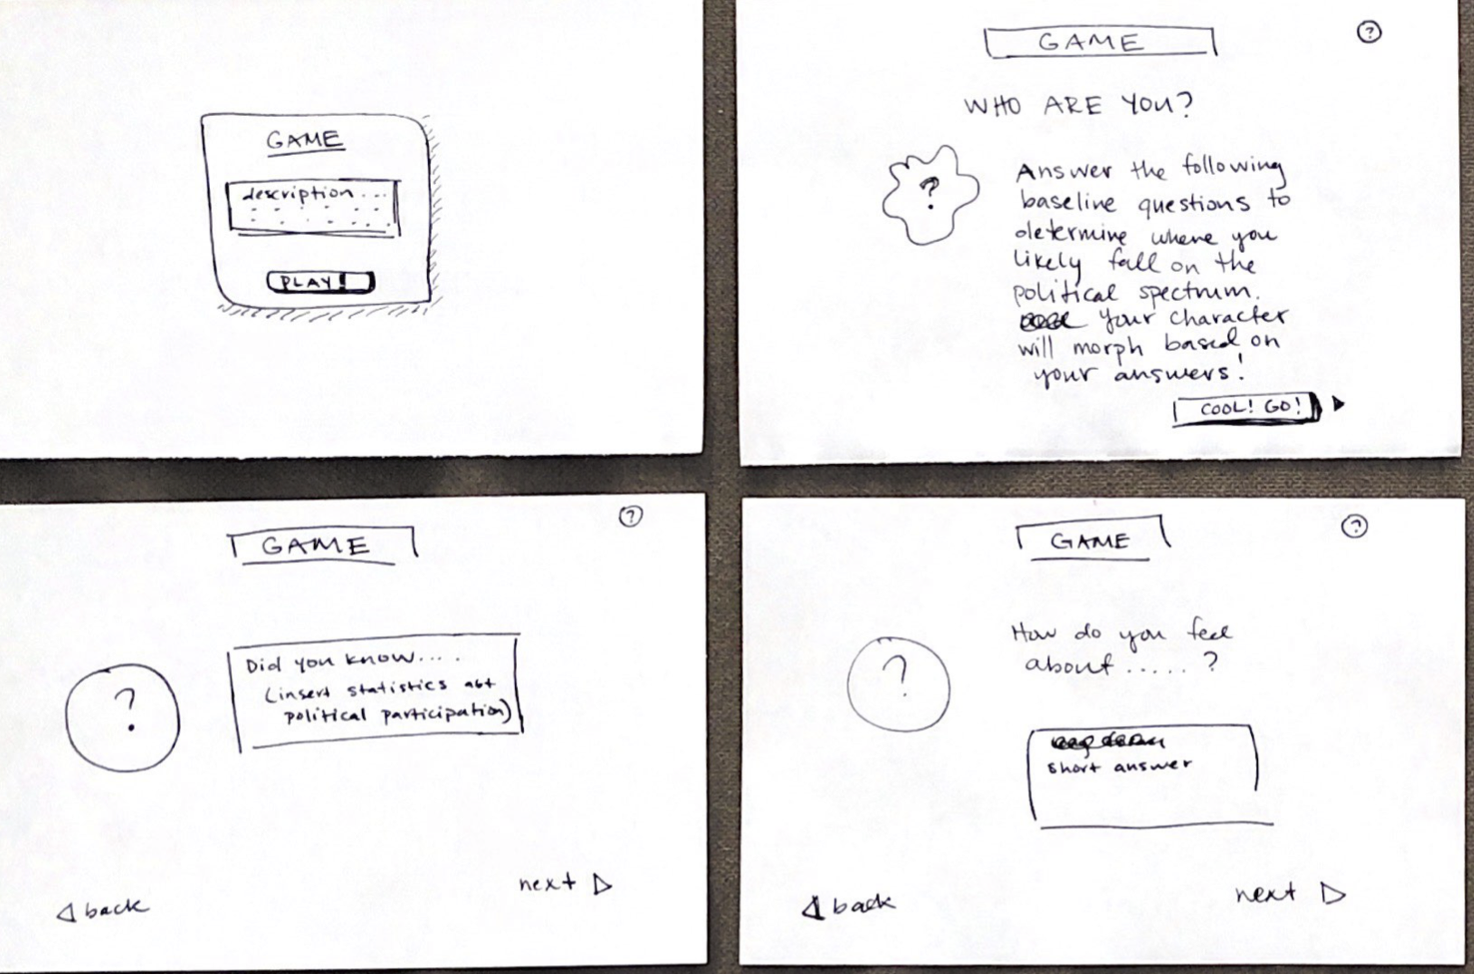 GAME
description...
PLAY!
GAME
?
WHO ARE YOU?
?
Answer the following
baseline questions to
determine where you
likely fall on the
political spectrum.
Your character
will morph based on
your answers!
COOL! GO!
GAME
?
?
Did you know....
(insert statistics abt
political participation)
back
next
GAME
?
?
How do you feel
about.....?
short answer
back
next